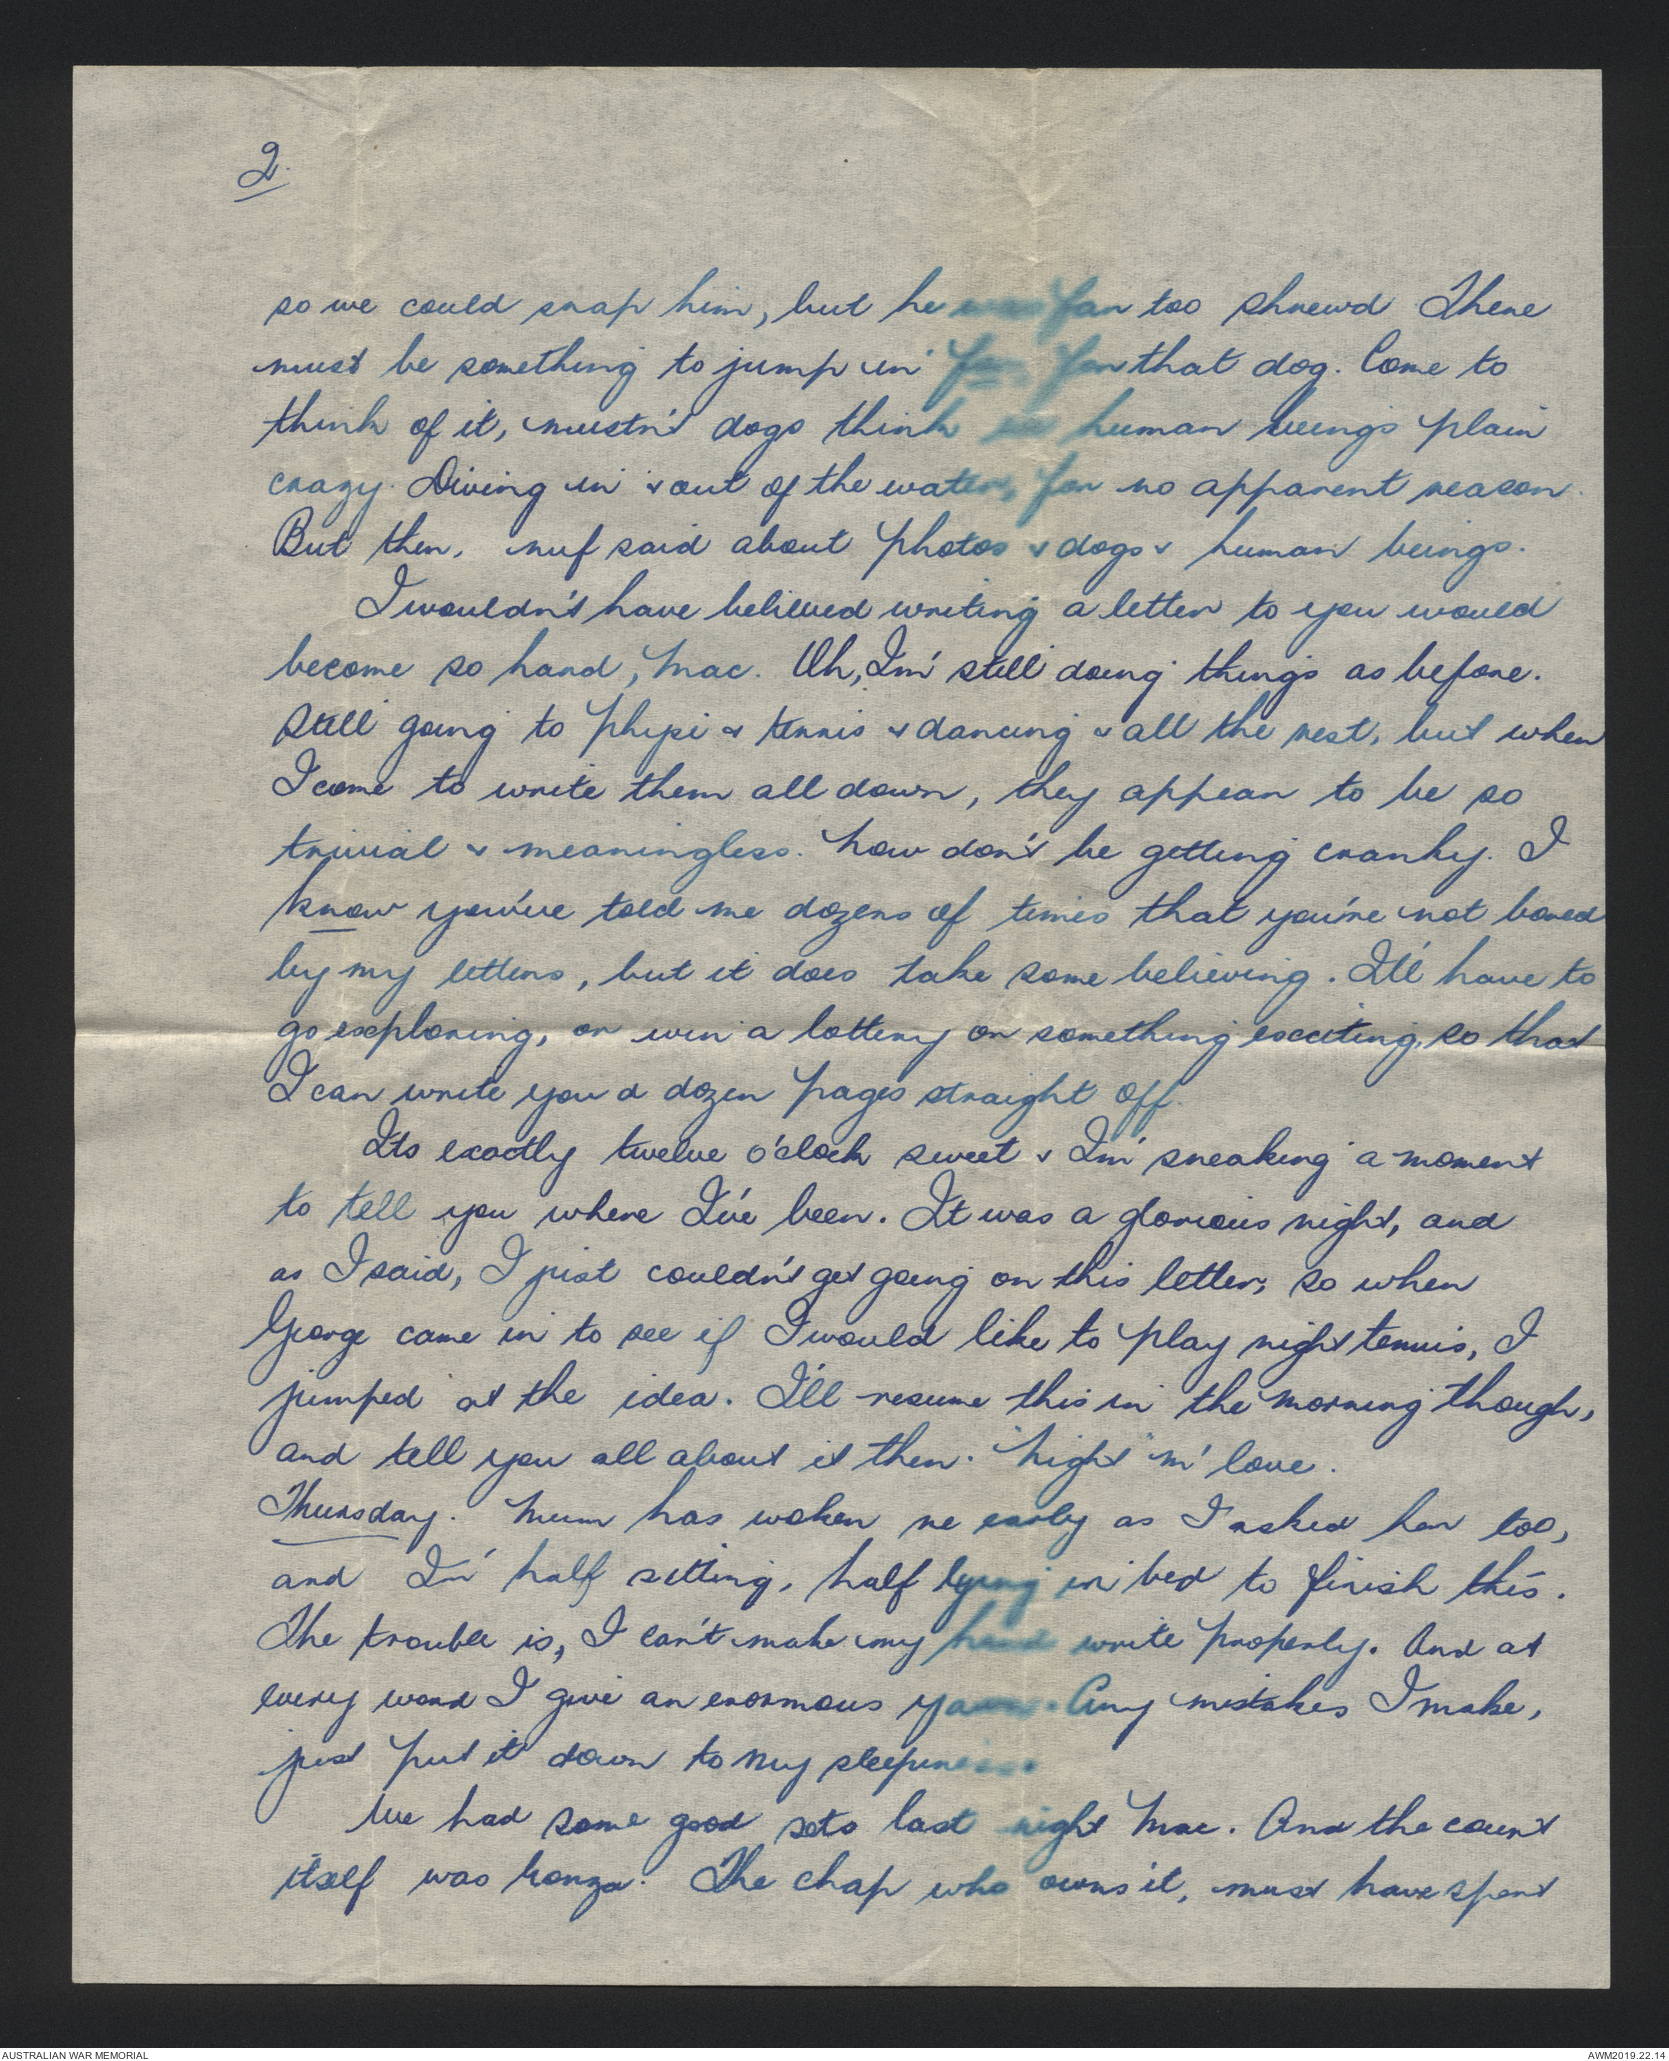 2.
so we could snap him, but he was far too shrewd There
must be something to jump in for, for that dog. Come to
think of it, mustn't dogs think us human beings plain
crazy. Diving in & out of the water, for no apparent reason.
But then, nuf said about photos & dogs & human beings.
I wouldn't have believed writing a letter to you would
become so hard, Mac. Oh, I'm still doing things as before.
Still going to Physi & tennis & dancing & all the rest, but when
I come to write them all down, they appear to be so
trivial & meaningless. Now don't be getting cranky. I
know you've told me dozens of times that you're not bored
by my letters, but it does take some believing. I'll have to
go exploring, or win a lottery or something exciting, so that
I can write you a dozen pages straight off.
Its exactly twelve o'clock sweet & I'm sneaking a moment
to tell you where I've been. It was a glorious night, and
as I said, I just couldn't get going on this letter, so when
George came in to see if I would like to play night tennis, I
jumped at the idea. I'll resume this in the morning though,
and tell you all about it then. "Night" m' love.
Thursday. Mum has woken me early as I asked her too,
and I'm half sitting, half lying in bed to finish this.
The trouble is, I can't make my hand write properly. And at
every word I give an enormous yawn. Any mistakes I make,
just put it down to my sleepiness.
We had some good sets last night Mac. And the court
itself was bonza. The chap who owns it, must have spent
AUSTRALIAN WAR MEMORIAL
AWM2019.22.14